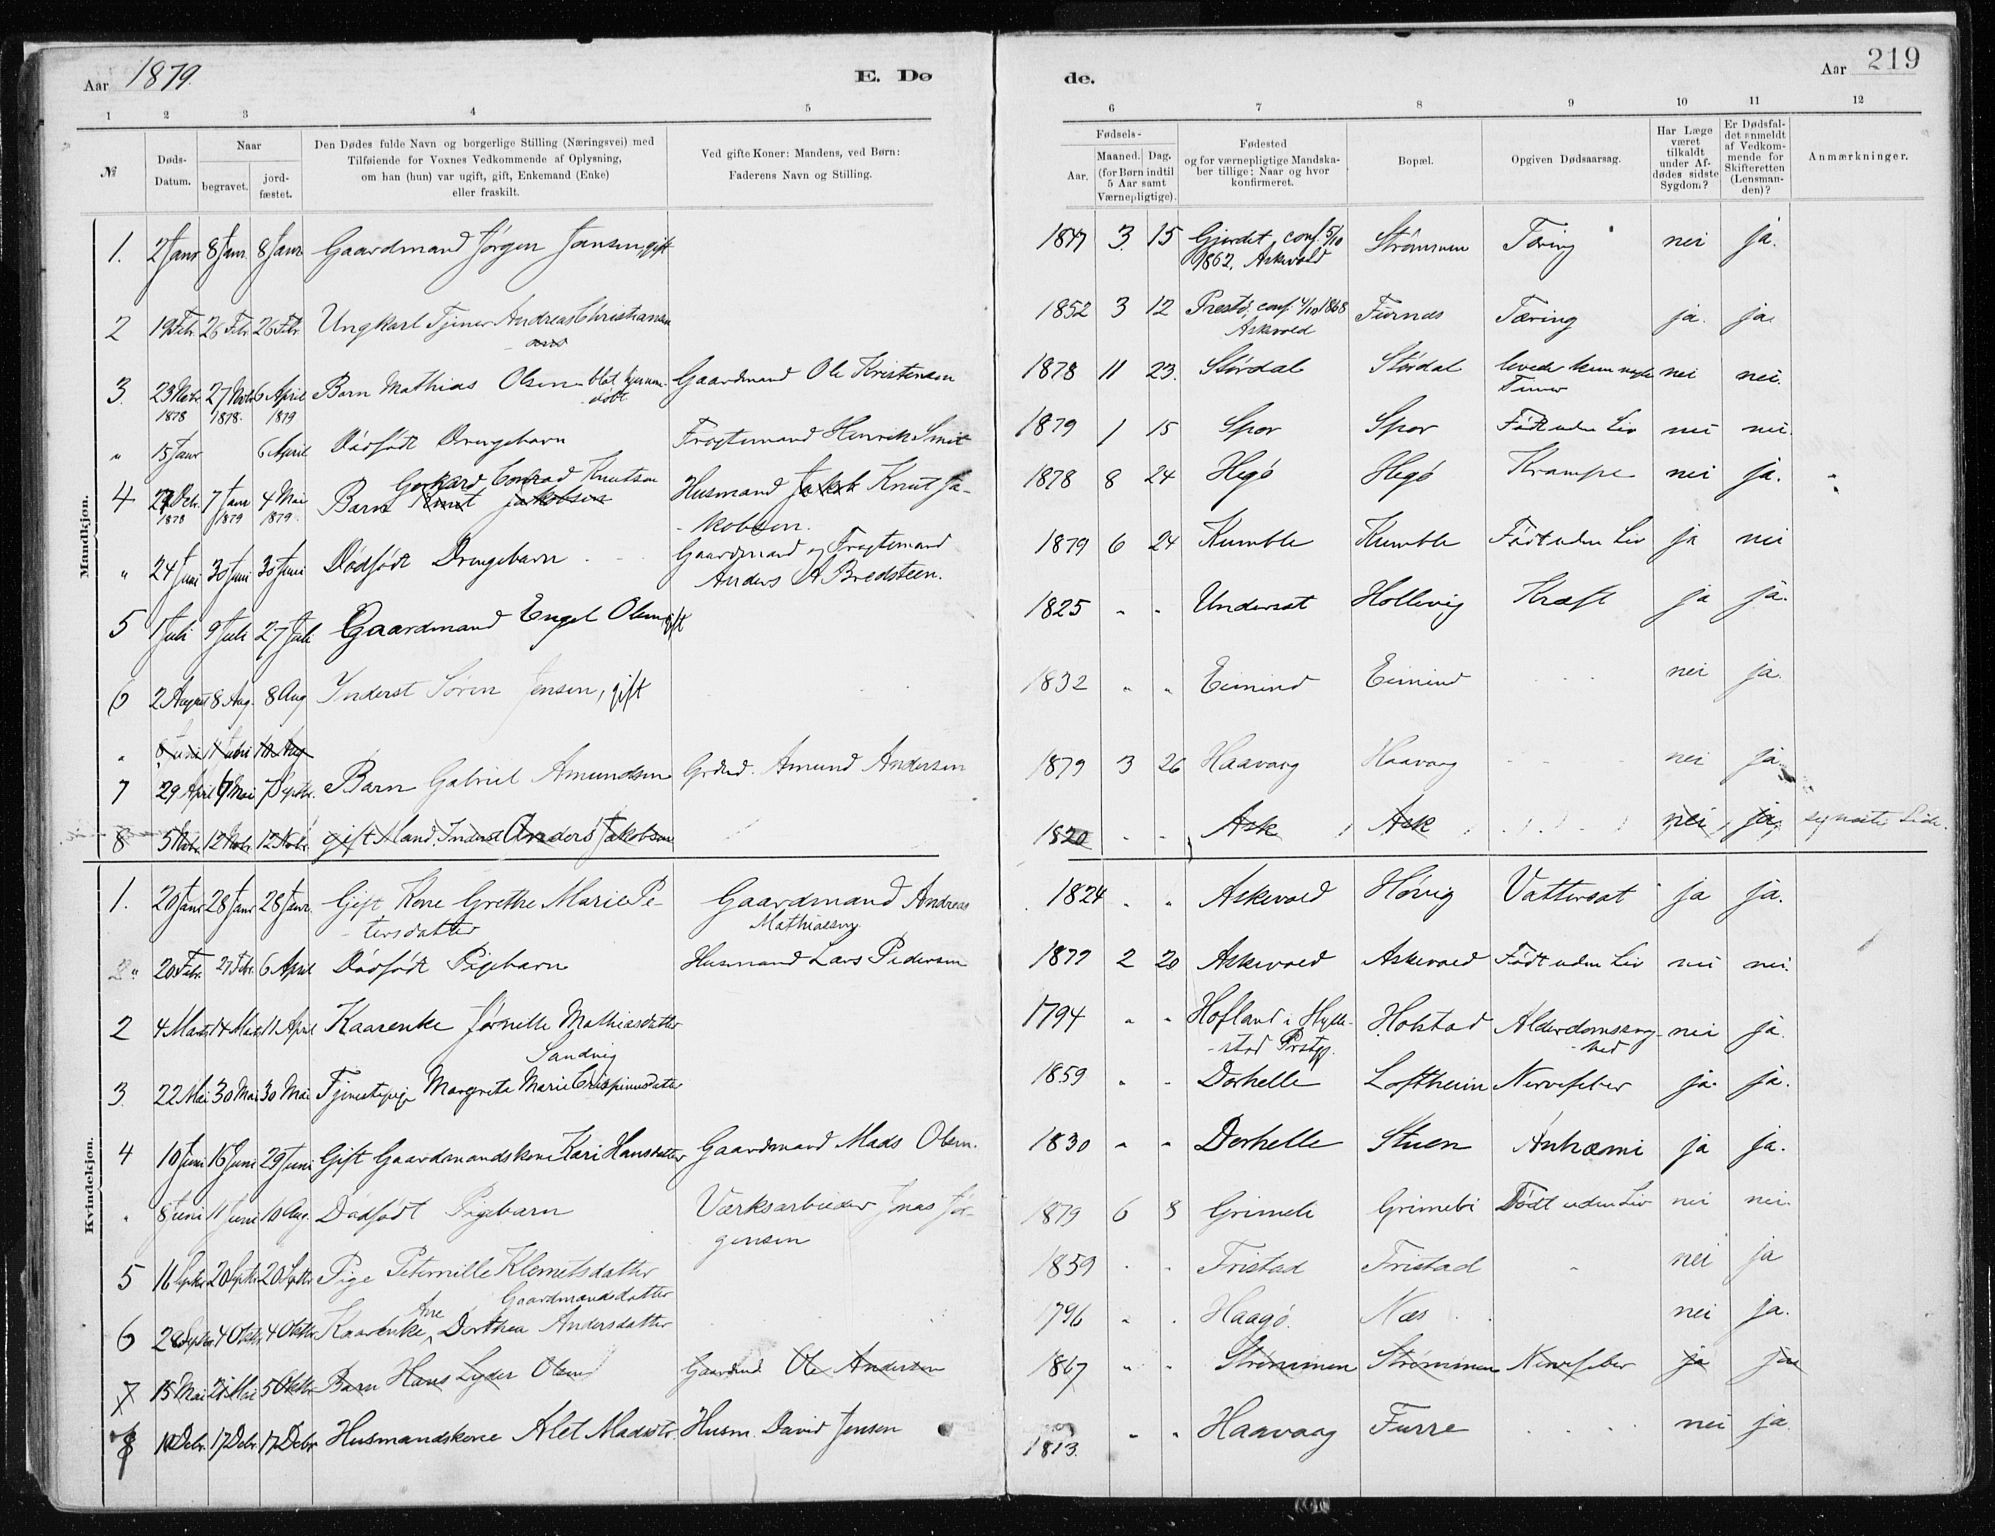 Aar 1879.
E. Dø
de.
Aar 219
1 2 3 4 5
6 7 8 9 10 11 12
№
Døds-
Datum.
Naar
begravet.
jord-
fæstet.
Den Dødes fulde Navn og borgerlige Stilling (Næringsvei) med
Tilføiende for Voxnes Vedkommende af Oplysning,
om han (hun) var ugift, gift, Enkemand (Enke)
eller fraskilt.
Ved gifte Koner: Mandens, ved Børn:
Faderens Navn og Stilling.
Fødsels-
Aar.
Maaned. Dag.
(for Børn indtil
5 Aar samt
Værnepligtige).
Fødested
og for værnepligtige Mandska-
ber tillige: Naar og hvor
konfirmeret.
Bopæl.
Opgiven Dødsaarsag.
Har Læge
været
tilkaldt
under Af-
dødes sidste
Sygdom?
Er Dødsfal-
det anmeldt
af Vedkom-
mende for
Skifteretten
(Lensman-
den)?
Anmærkninger.
Mandkjøn.
1. 2 Janr 8 Janr 8 Janr Gaardmand Jørgen Jansen, gift 1847 3. 15 Gjerdet conf. 5/10 Strømmen Tæring nei ja.
1862, Askevold
2 19 Febr. 26 Febr 26 Febr Ungkarl Tjener Andreas Christiansen 1852 3 12 conf. 1868 Furnes Tæring ja. ja.
Askvold
3. 23 Nobr. 27 Nobr 6 April Barn Mathias Olsen blot hjemme- Gaardmand Ole Kristensen 1878 11 23. Stórdal Stórdal levede kun nogle nei nei.
1878 1878. 1879 døbt. Timer
" 15 Janr 6 April Dødfødt Drengebarn Fragtemand Henrik Smit 1879 1 15 Spor Spor Født uden Liv nei nei.
Gerhard Conrad Knutsen
4 27 Decbr. 7 Janr 4 Mai Barn Knut Jakobsen Husmand Jakob Knut Ja- 1878 8 24 Hegö Hegö Krampe nei ja.
1878 1879 1879. kobsen.
" 24 Juni 30 Juni 30 Juni Dødfødt Drengebarn Gaardmand og Fragtemand 1879 6 24 Kumble Kumble Født uden Liv ja nei
Anders A Bredsteen.
5 1 Juli 9 Juli 27 Juli Gaardmand Engel Olsen, gift 1825 " " Underset Hollevig Kræft ja ja.
6 2 August 8 Aug. 8 Aug Inderst Søren Jensen, gift 1832 " " Eimind Eimind nei ja.
" 8 Juni 11 Juni 10 Aug
7 29 April 7 Mai 7 Septbr. Barn Gabriel Amundsen Grdmd. Amund Andersen 1879 3 26 Haavaag Haavaag nei ja.
8 5 Nobr. 12 Nobr. 12 Nobr gift Mand, Inderst Anders Jakobsen 1820 " " Ask Ask nei ja. se næste Side.
Kvindekjøn.
1. 20 Janr 28 Janr 28 Janr. Gift Kone Grethe Marie Pe- Gaardmand Andreas 1824 " " Askevold Høvig Vattersot ja ja.
tersdatter Mathiassen
" 20 Febr. 27 Febr. 6 April Dødfødt Pigebarn Husmand Lars Pedersen 1879 2 20 Askevold Askevold Født uden Liv nei nei.
2 4 Marts 14 Marts 11 April Kaarenke Jørnelle Mathiasdatter 1794 " " Hofland i Hylle- Holstad Alderdomssvag- nei ja.
Sandvig stad Prstgj. hed
3. 22 Mai 30 Mai 30 Mai Tjenestepige Margrete Marie Crispinusdatter 1859 " " Dorhelle Loftheim Nervefeber ja. ja.
4 10 Juni 16 Juni 29 Juni Gift Gaardmandskone Kari Hansdatter Gaardmand Mads Olsen. 1830 " " Dorhelle Stuen ja ja.
" 8 Juni 11 Juni 10 Aug. Dødfødt Pigebarn Værksarbeider Jonas Jør- 1879 6 8 Grimele Grimeli Født uden Liv nei nei.
gensen
5 16 Septbr 20 Septbr 20 Septbr Pige Peternille Klemetsdatter 1859 " " Fristad Fristad nei ja
Gaardmandsdatter
6 28 Septbr 4 Oktbr 4 Oktbr Kaarenke Ane Dorthea Andersdatter 1796 " " Haagø. Næs nei ja.
7 15 Mai 21 Mai 5 Oktbr Barn Hans Lyder Olsen Gaardmd. Ole Andersen 1867 " " Strømmen Strømmen Nervefeber ja ja
8 10 Debr. 17 Debr 17 Debr Husmandskone Alet Madsdtr. Husm. David Jensen 1813. " " Haavaag Furre nei ja.